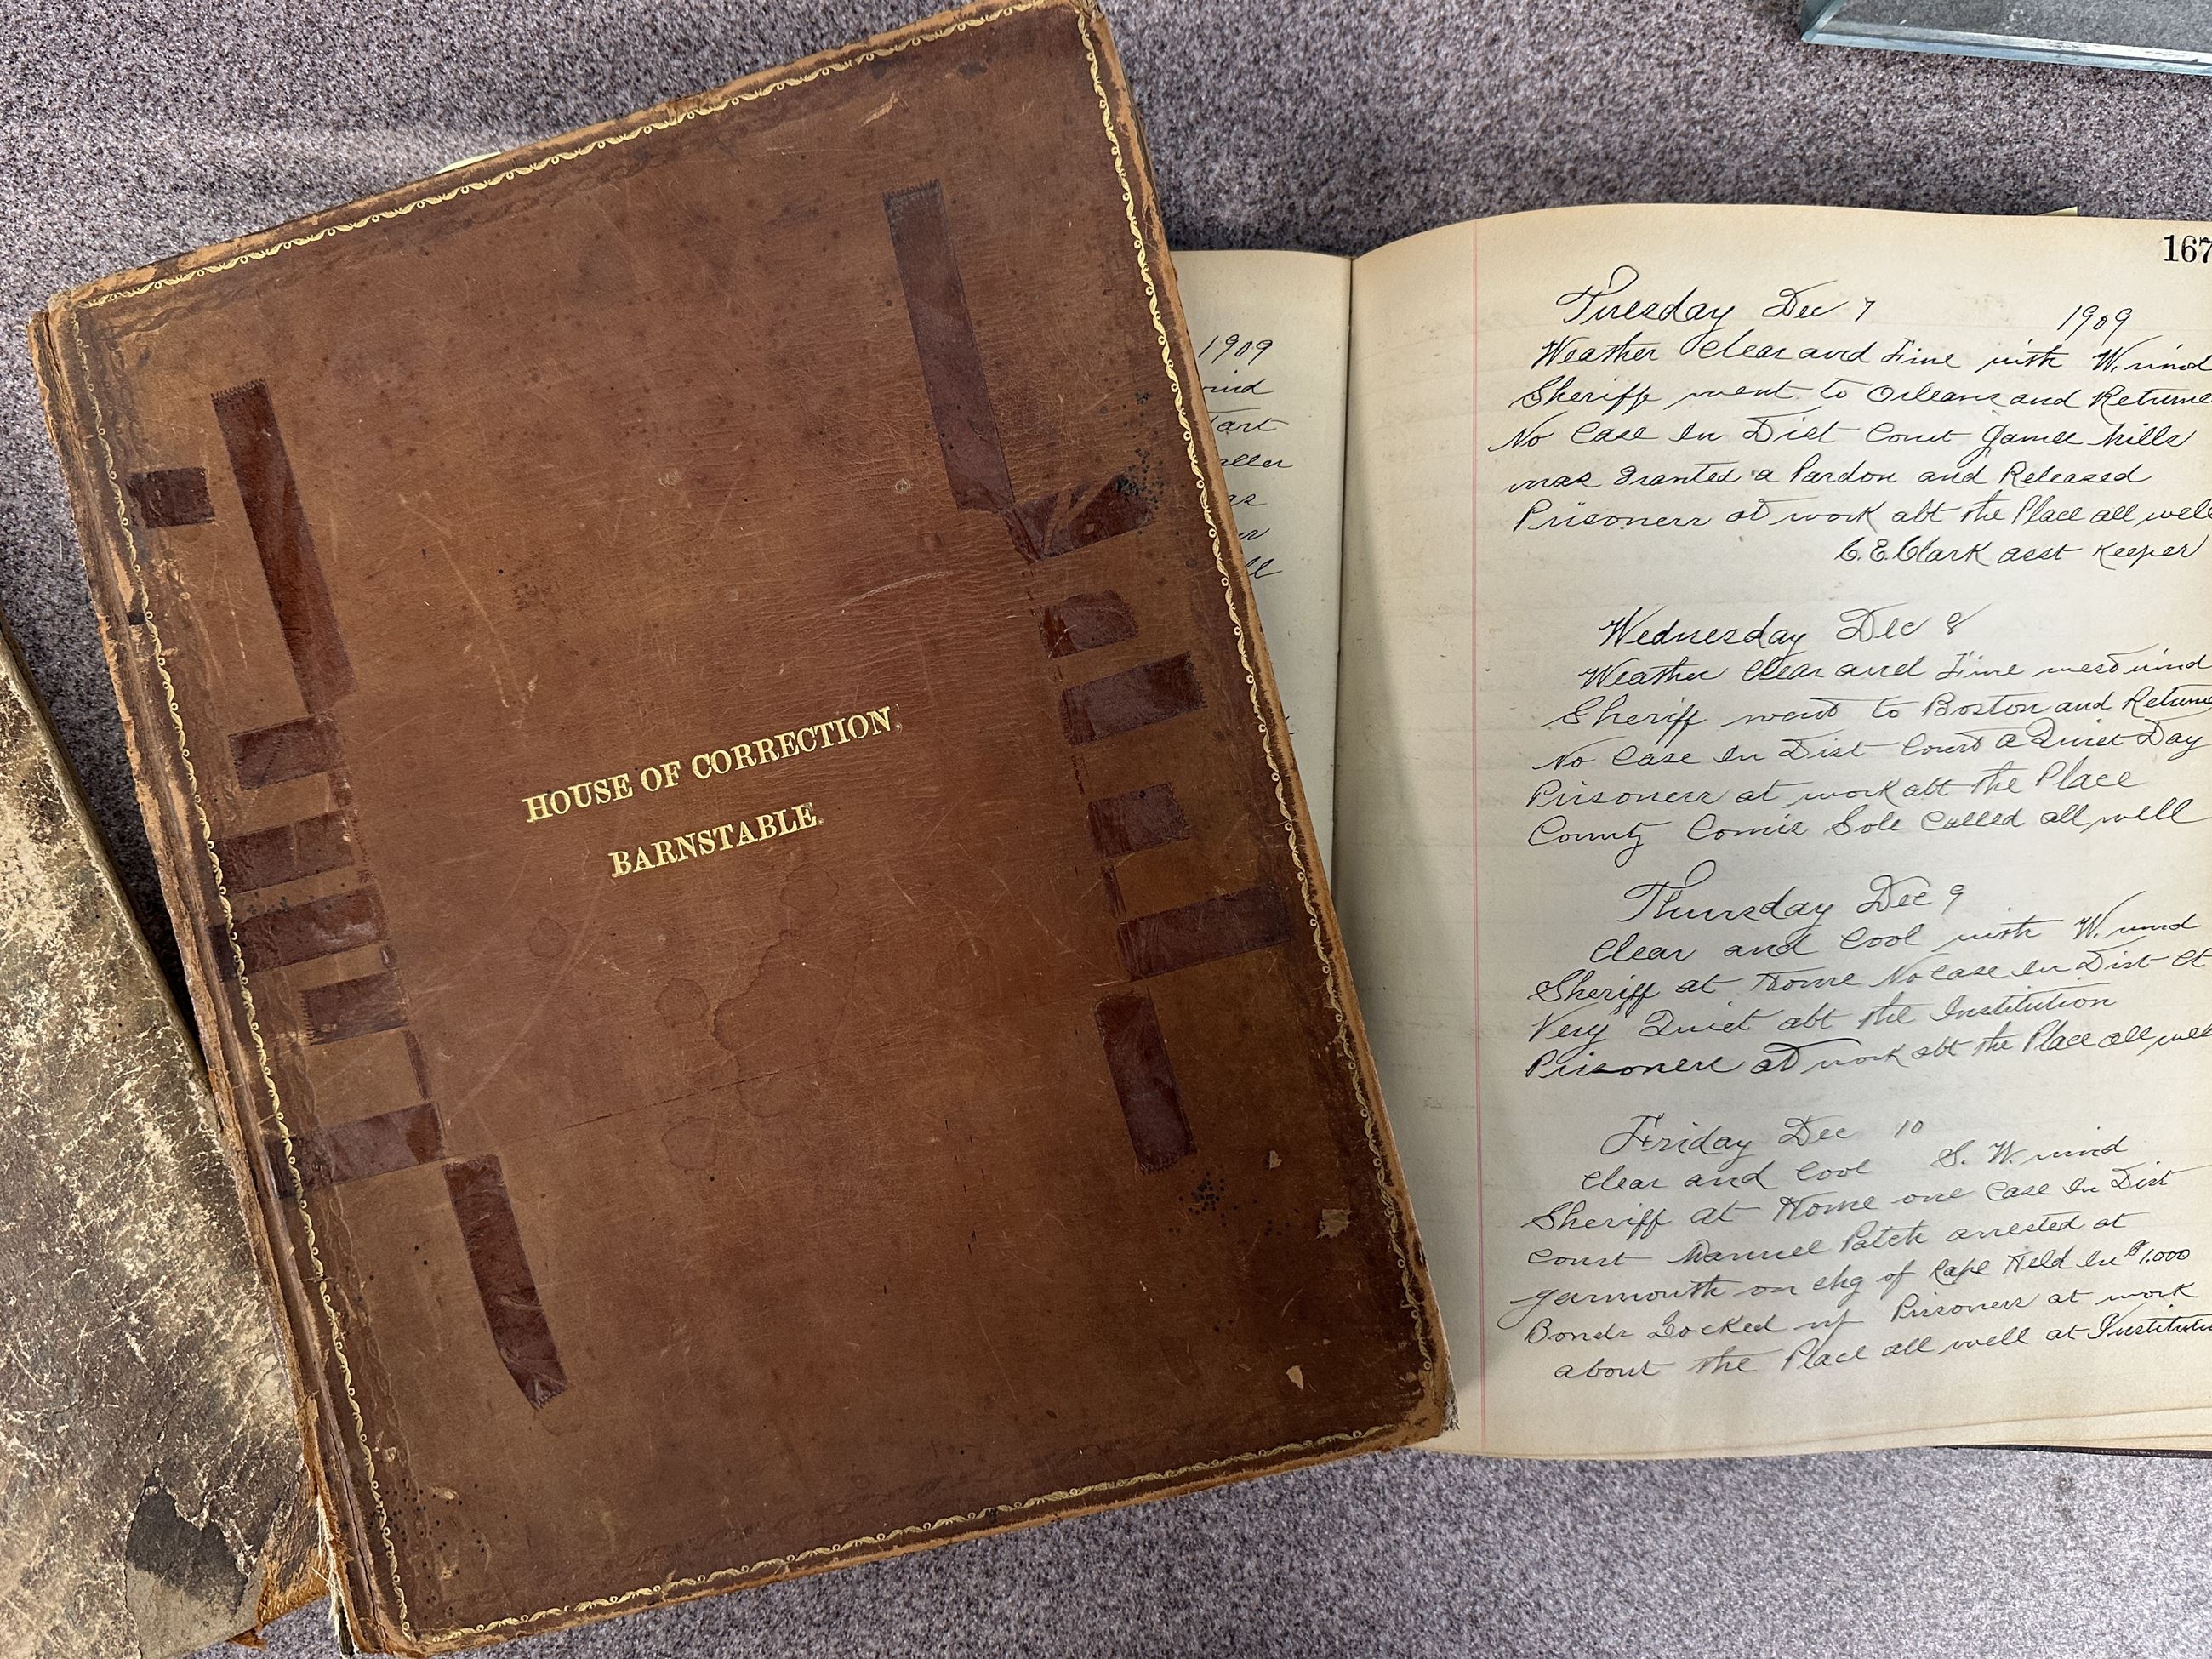 HOUSE OF CORRECTION,
BARNSTABLE.
1909
wind
167
Tuesday Dec 7 1909
Weather Clear and Fine with W. wind
Sheriff went to Orleans and Returne
No Case In Dist Court James Mills
was Granted a Pardon and Released
Prisoners at work abt the Place all well
C. E. Clark asst Keeper
Wednesday Dec 8
Weather Clear and Fine west wind
Sheriff went to Boston and Returne
No Case In Dist Court a Quiet Day
Prisoners at work abt the Place
County Comis Sole Called all well
Thursday Dec 9
Clear and Cool with W. wind
Sheriff at Home No Case In Dist Ct
Very Quiet abt the Institution
Prisoners at work abt the Place all well
Friday Dec 10
Clear and Cool S. W. wind
Sheriff at Home one Case In Dist
Court Manuel Patch arrested at
Yarmouth on chg of Rape Held In $1.000
Bonds Locked up Prisoners at work
about the Place all well at Institutu